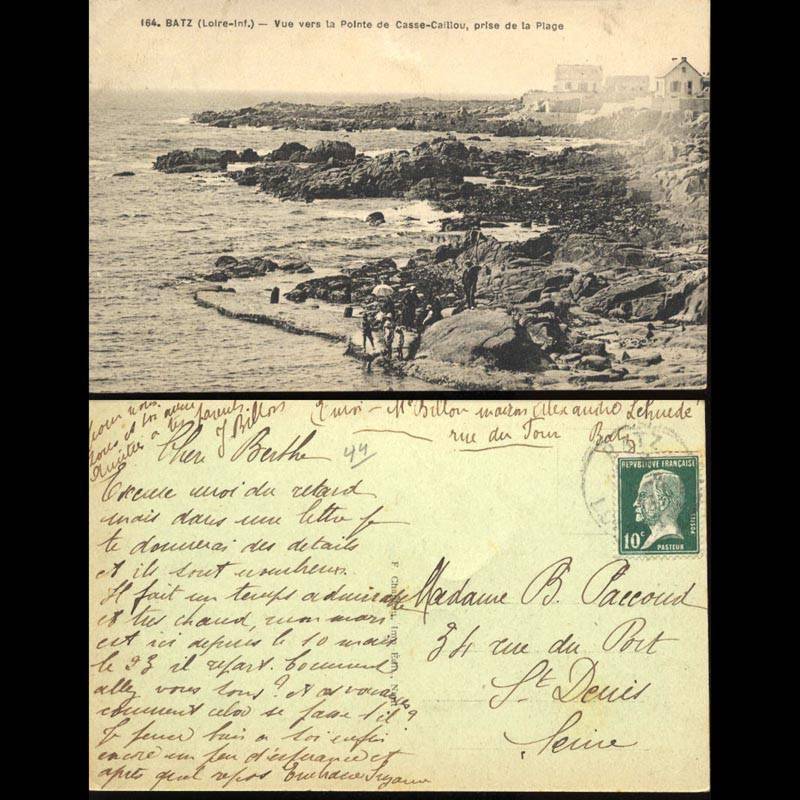 164. BATZ (Loire-Inf.) — Vue vers la Pointe de Casse-Caillou, prise de la Plage
pour nous
tous et toi avec
Amitiés à tes parents.
J Billon
moi — Mr Billon maison Alexandre Lehuédé
rue du Four Batz
BATZ
Chere Berthe
44
Excuse moi du retard
mais dans une lettre je
te donnerai des details
et ils sont nombreux.
Il fait un temps admirable
et tres chaud, mon mari
est ici depuis le 10 mais
le 23 il repart. Comment
allez vous tous? et vos vacances
comment cela se passe t'il?
Je pense bien a toi enfin
encore un peu d'esperance et
après quel repos Embrasse Suzanne
RÉPUBLIQUE FRANÇAISE
10c
POSTES
PASTEUR
Madame B. Paccoud
34 rue du Port
St Denis
Seine